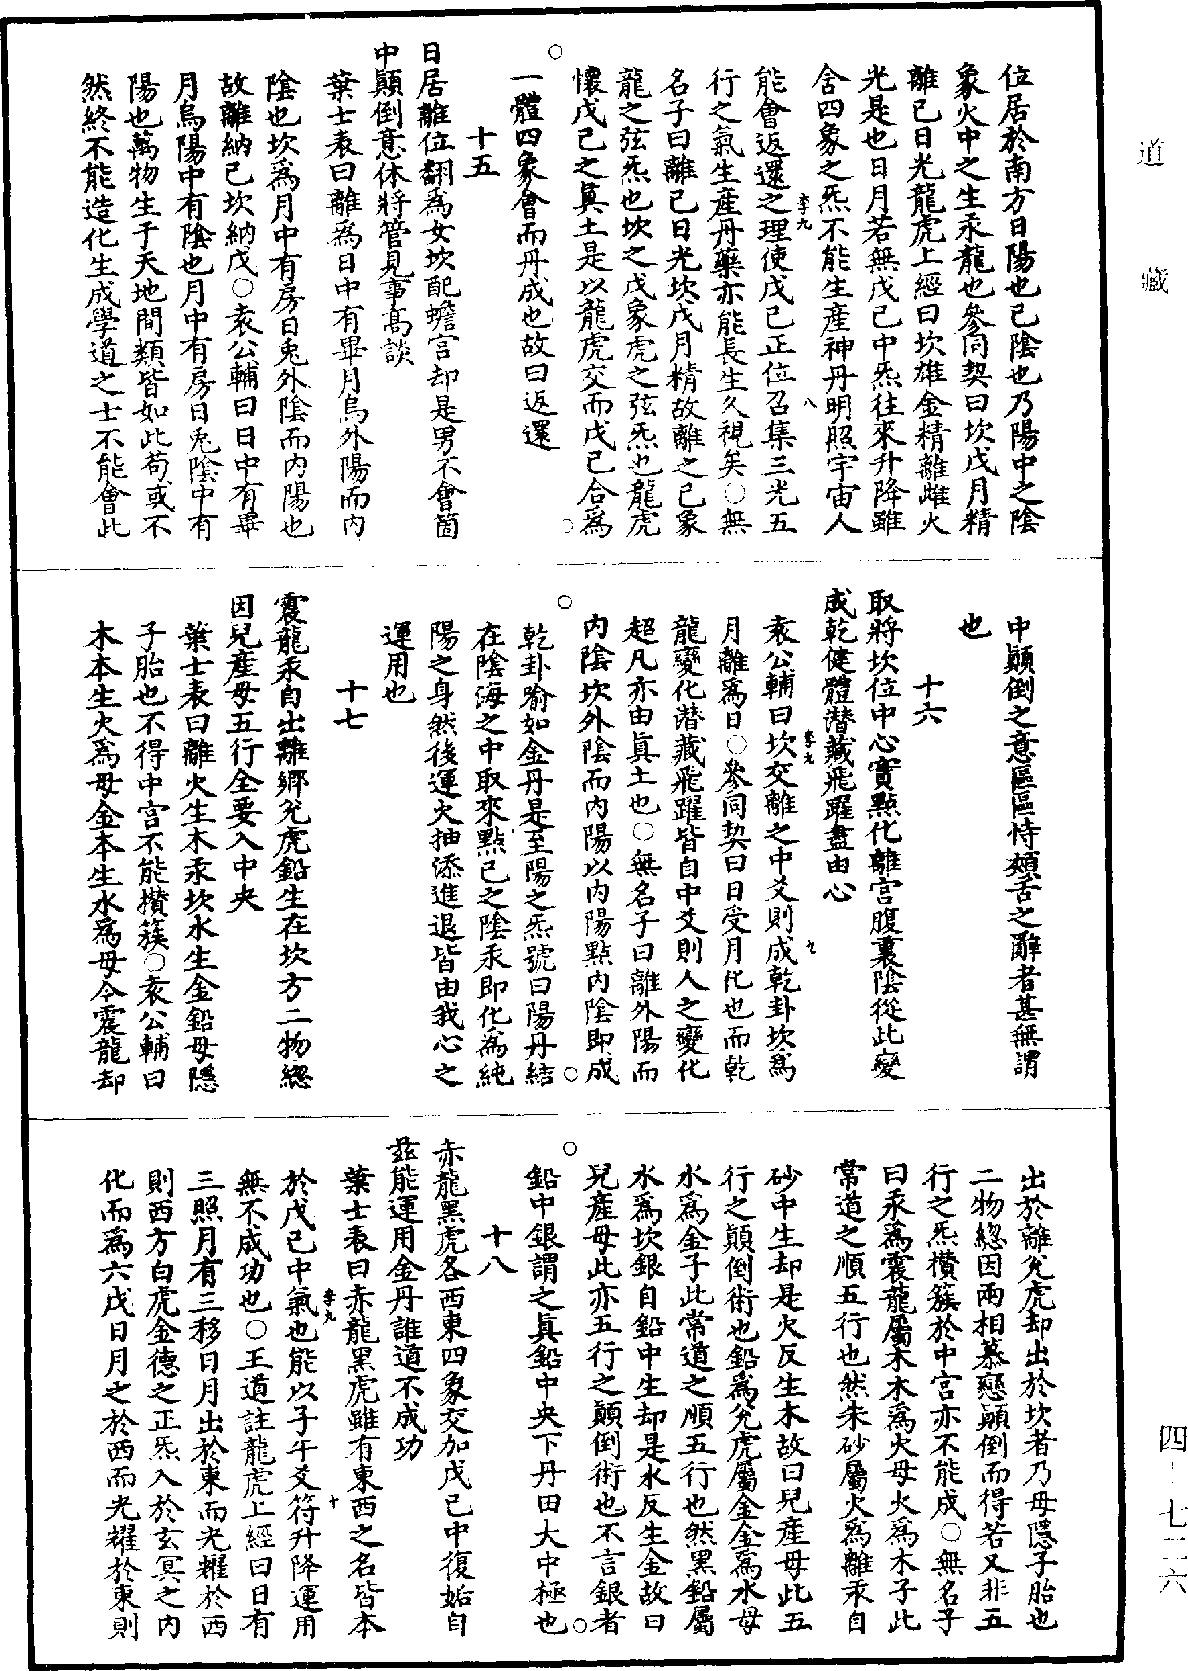 道藏
位居於南方日陽也己陰也乃陽中之陰
象火中之生汞龍也參同契曰坎戊月精
離己日光龍虎上經曰坎雄金精離雌火
光是也日月若無戊己中炁往來升降雖
含四象之炁不能生產神丹明照宇宙人
李九
八
能會返還之理使戊己正位召集三光五
行之氣生產丹藥亦能長生久視矣○無
名子曰離己日光坎戊月精故離之己象
龍之弦炁也坎之戊象虎之弦炁也龍虎
懷戊己之真土是以龍虎交而戊己合為
一體四象會而丹成也故曰返還
十五
日居離位翻為女坎配蟾宮却是男不會箇
中顛倒意休將管見事高談
葉士表曰離為日中有畢月烏外陽而內
陰也坎為月中有房日兔外陰而內陽也
故離納己坎納戊○袁公輔曰日中有畢
月烏陽中有陰也月中有房日兔陰中有
陽也萬物生于天地間類皆如此苟或不
然終不能造化生成學道之士不能會此
中顛倒之意區區恃頰舌之辭者甚無謂
也
十六
取將坎位中心實點化離宮腹裏陰從此變
成乾健體潛藏飛躍盡由心
李九
九
袁公輔曰坎交離之中爻則成乾卦坎為
月離為日○參同契曰日受月化也而乾
龍變化潛藏飛躍皆自中爻則人之變化
超凡亦由真土也○無名子曰離外陽而
內陰坎外陰而內陽以內陽點內陰即成
乾卦喻如金丹是至陽之炁號曰陽丹結
在陰海之中取來點己之陰汞即化為純
陽之身然後運火抽添進退皆由我心之
運用也
十七
震龍汞自出離鄉兌虎鉛生在坎方二物總
因兒產母五行全要入中央
葉士表曰離火生木汞坎水生金鉛母隱
子胎也不得中宮不能攢簇○袁公輔曰
木本生火為母金本生水為母今震龍却
出於離兌虎却出於坎者乃母隱子胎也
二物總因兩相慕戀顛倒而得若又非五
行之炁攢簇於中宮亦不能成○無名子
曰汞為震龍屬木木為火母火為木子此
常道之順五行也然朱砂屬火為離汞自
砂中生却是火反生木故曰兒產母此五
行之顛倒術也鉛為兌虎屬金金為水母
水為金子此常道之順五行也然黑鉛屬
水為坎銀自鉛中生却是水反生金故曰
兒產母此亦五行之顛倒術也不言銀者
鉛中銀謂之真鉛中央下丹田大中極也
十八
赤龍黑虎各西東四象交加戊己中復姤自
茲能運用金丹誰道不成功
葉士表曰赤龍黑虎雖有東西之名皆本
李九
十
於戊己中氣也能以子午爻符升降運用
無不成功也○王道註龍虎上經曰日有
三照月有三移日月出於東而光耀於西
則西方白虎金德之正炁入於玄冥之內
化而為六戊日月之於西而光耀於東則
四－七二六